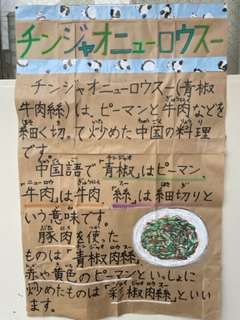 チンジャオニューロウスー
チンジャオニューロウスー(青椒
牛肉絲)は、ピーマンと牛肉などを
細く切って炒めた中国の料理
です。
中国語で「青椒」はピーマン
「牛肉」は牛肉「絲」は細切りと
いう意味です。
豚肉を使った
ものは「青椒肉絲」
赤や黄色のピーマンといっしょに
炒めたものは「彩椒肉絲」といい
ます。